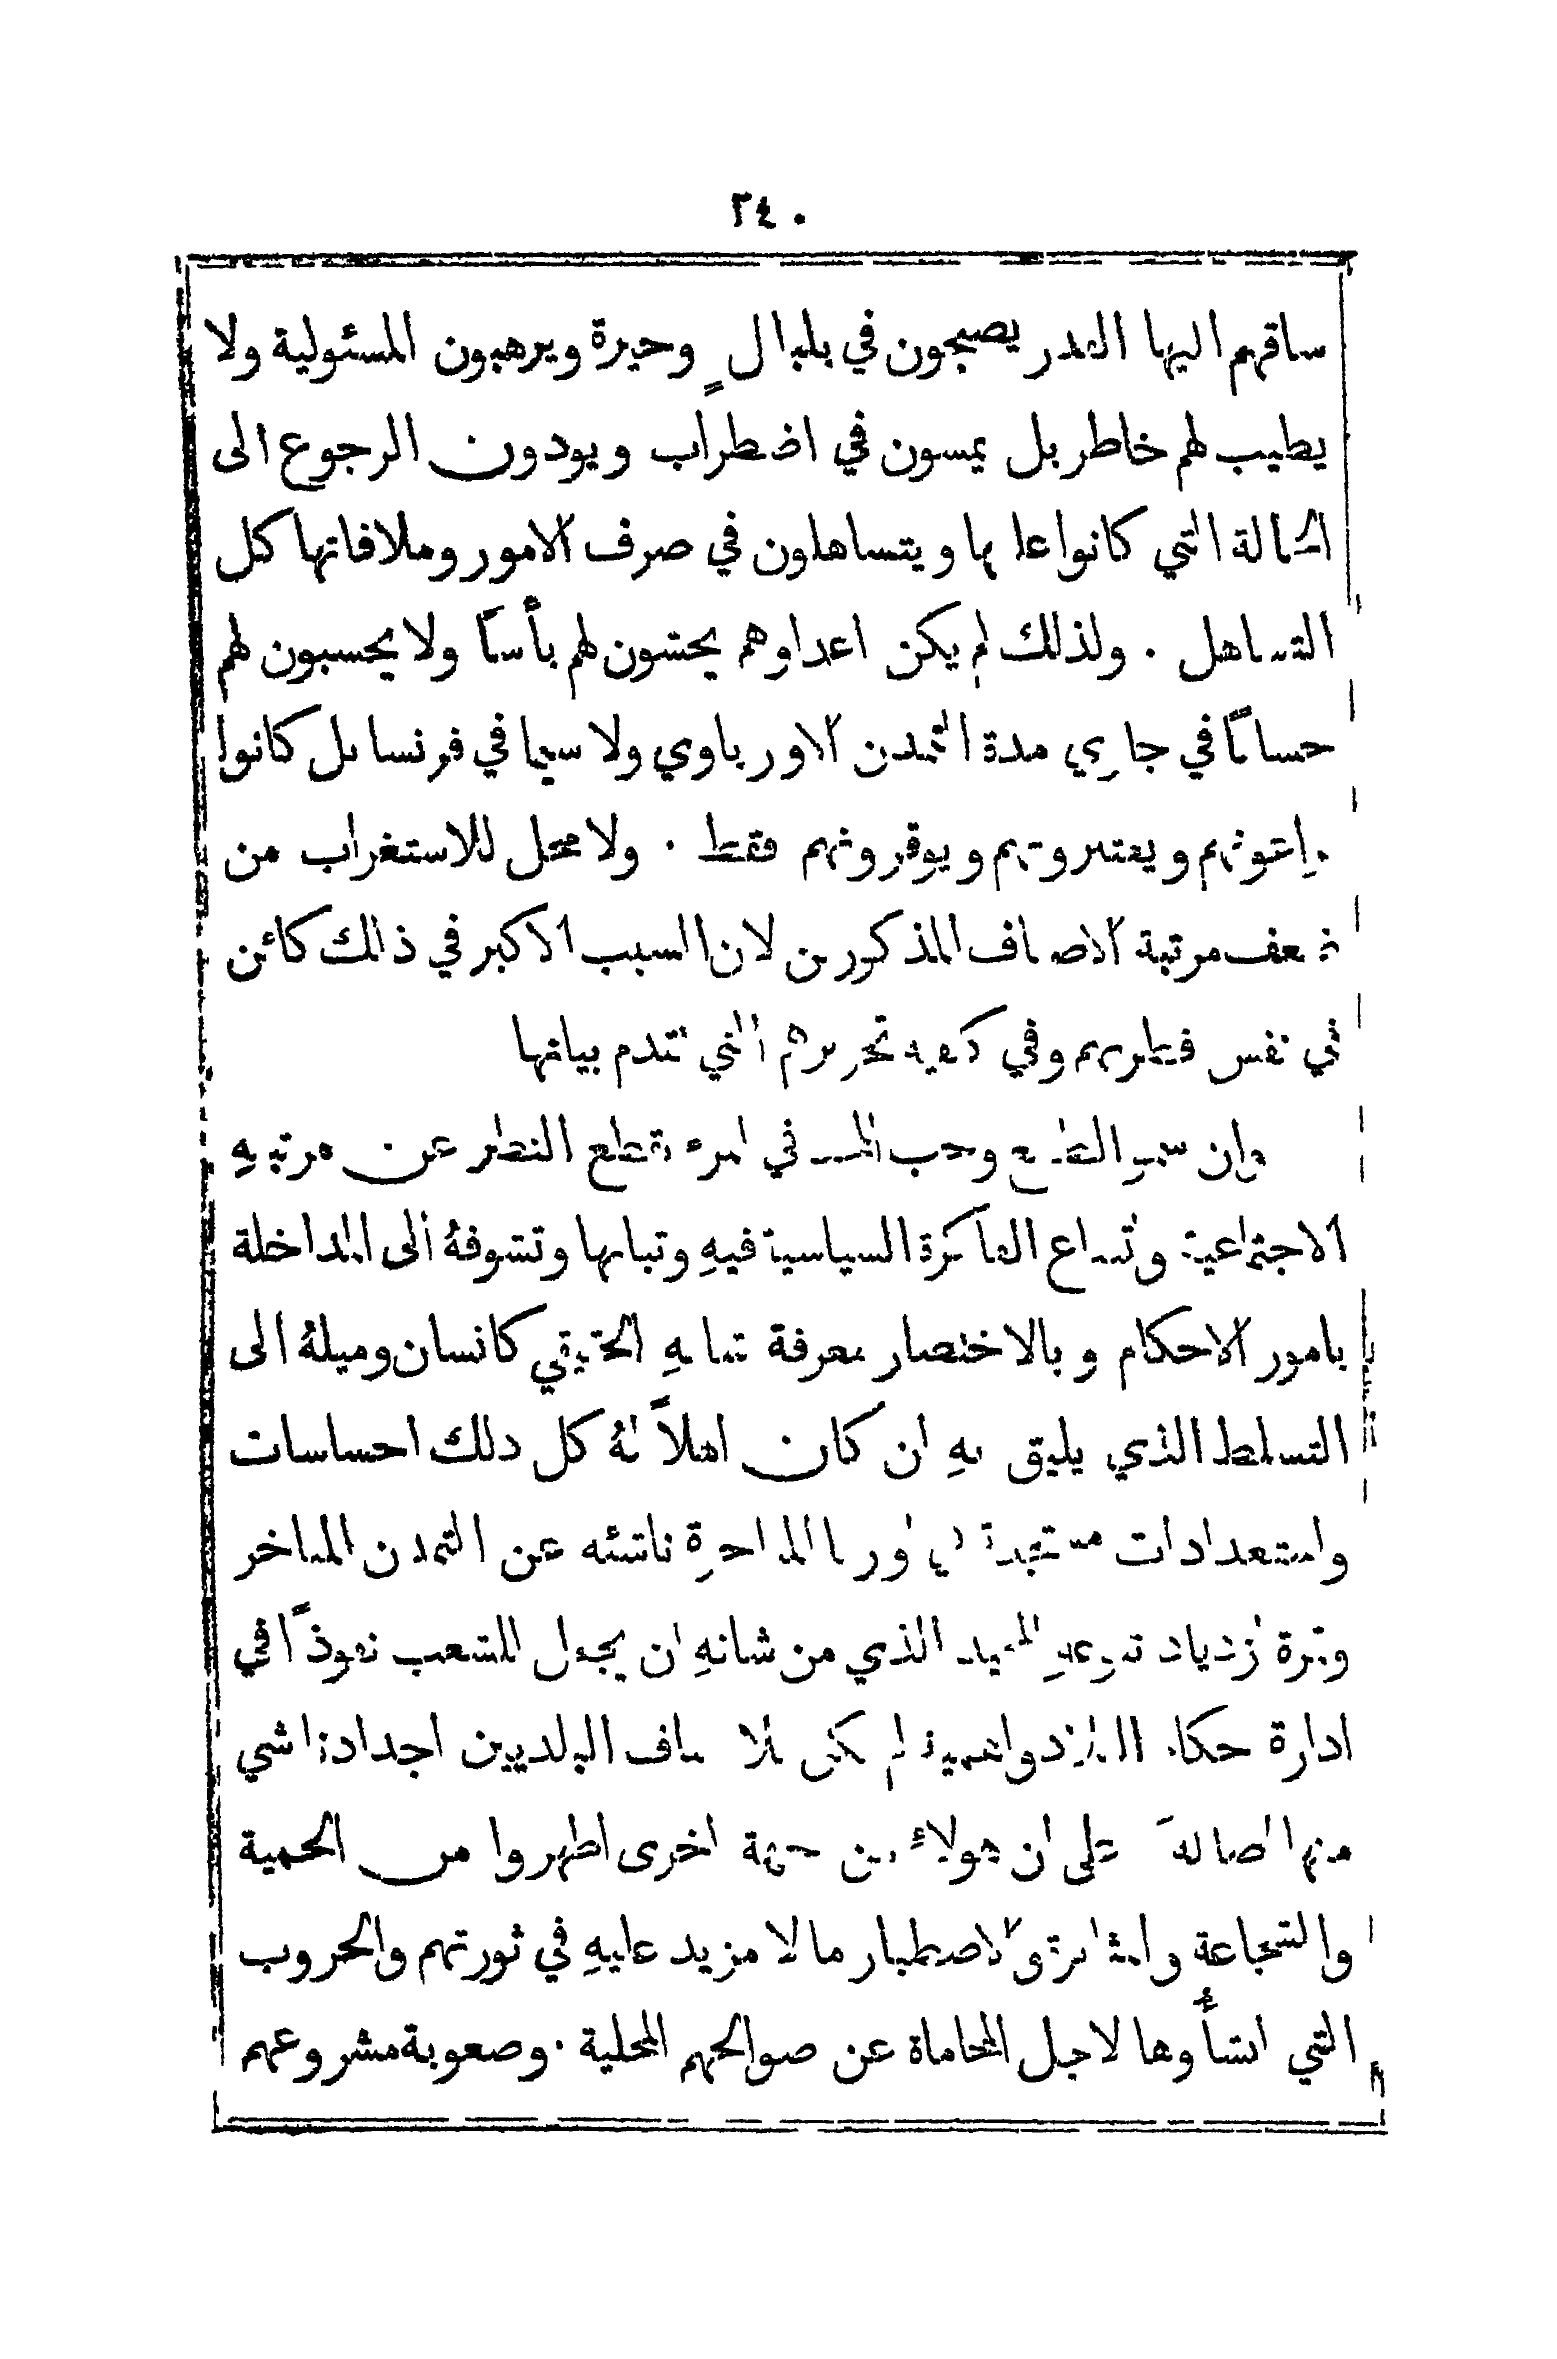 ٢٤٠
ساقهم اليها القدر يصبحون في بلبالٍ وحيرة ويرهبون المسئولية ولا
يطيب لهم خاطر بل يمسون في اضطراب ويودون الرجوع الى
الحالة التي كانوا عليها ويتساهلون في صرف الامور وملافاتها كل
التساهل . ولذلك لم يكن اعداوهم يخشون لهم بأسًا ولا يحسبون لهم
حسابًا في جاري مدة التمدن الاورباوي ولا سيما في فرنسا بل كانوا
ويعتبرونهم ويوقرونهم فقط . ولا محل للاستغراب من
ضعف مرتبة الاصناف المذكورين لان السبب الاكبر في ذلك كائن
في نفس فطرتهم وفي كيفية تحريرهم التي تقدم بيانها
وان سمو الطبع وحب المجد في المرء بقطع النظر عن مرتبتهِ
الاجتماعية واتساع الفاكرة السياسية فيهِ وتشوقهُ الى المداخلة
بامور الاحكام وبالاختصار معرفة مقامهِ الحقيقي كانسان وميلهُ الى
التسلط الذي يليق بهِ ان كان اهلاً لهُ كل ذلك احساسات
واستعدادات مستجدة في اوربا المتاخرة ناشئه عن التمدن المتاخر
وثمرة ازدياد الذي من شانهِ ان يجعل للشعب نفوذًا في
ادارة لم يكن لاسلاف البلديين اجدادنا شي
منها اصالةً على ان هولاءِ من جهة اخرى اظهروا من الحمية
والشجاعة والمثابرة والاصطبار ما لا مزيد عليهِ في ثورتهم والحروب
التي انشأوها لاجل المحاماة عن صوالحهم المحلية . وصعوبة مشروعهم